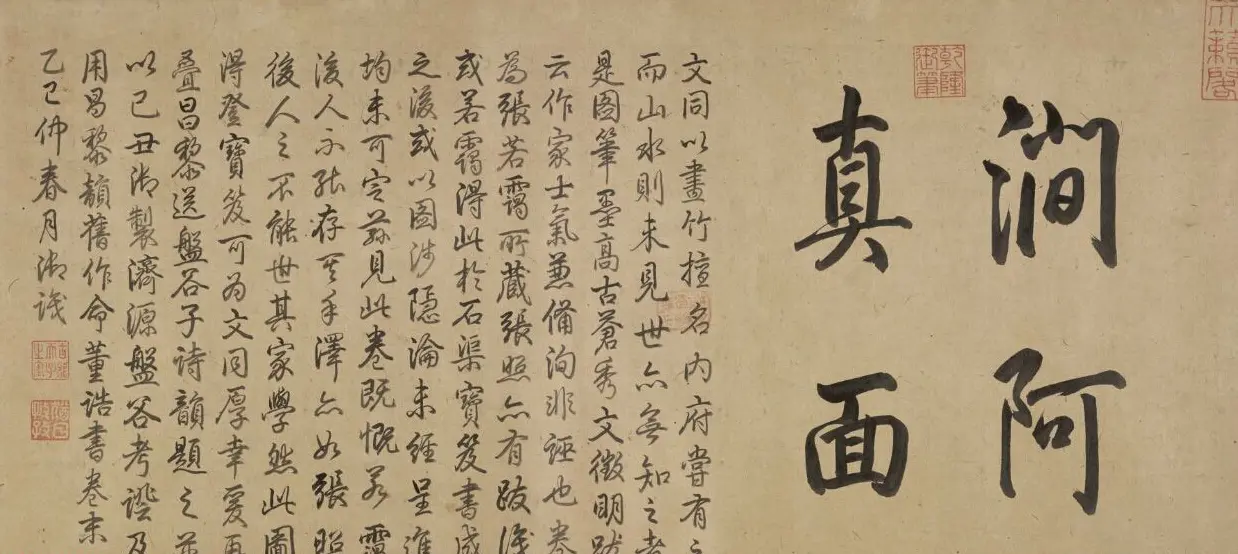 澗阿
真面
乾隆御筆
文同以畫竹擅名内府嘗有之
而山水則未見世亦無知之者
是圖筆墨高古蒼秀文徵明跋
云作家士氣兼備洵非誣也卷
為張若靄所藏張照亦有跋識
或若靄得此於石渠寶笈書成
之後或以圖涉隱淪未經呈進
均未可定茲見此卷既慨若靄
後人不能存其手澤亦如張照
後人之不能世其家學然此圖
得登寶笈可為文同厚幸爰再
疊昌黎送盤谷子詩韻題之並
以己丑御製濟源盤谷考證及
用昌黎韻舊作命董誥書卷末
乙巳仲春月御識